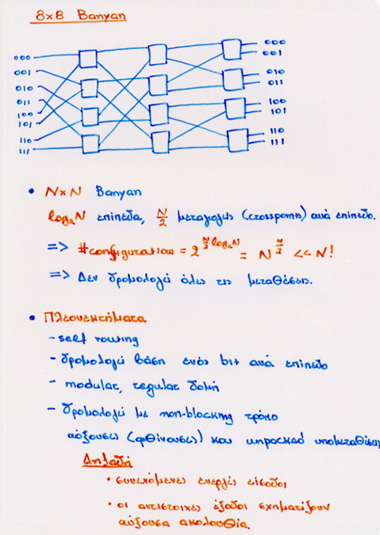 8x8 Banyan
000
001
010
011
100
101
110
111
000
001
010
011
100
101
110
111
• N×N Banyan
log₂N επίπεδα, N/2 μεταγωγείς (crosspoints) ανά επίπεδο.
=> #configurations = 2^(N/2 log₂N) = N^(N/2) << N!
=> Δεν δρομολογεί όλες τις μεταθέσεις.
• Πλεονεκτήματα
- self routing
- δρομολογεί βάση ενός bit ανά επίπεδο
- modular, regular δομή
- δρομολογεί με non-blocking τρόπο
αύξουσες (φθίνουσες) και
Δηλαδή
• συνεχόμενες ενεργές είσοδοι
• οι αντίστοιχες έξοδοι σχηματίζουν
αύξουσα ακολουθία.